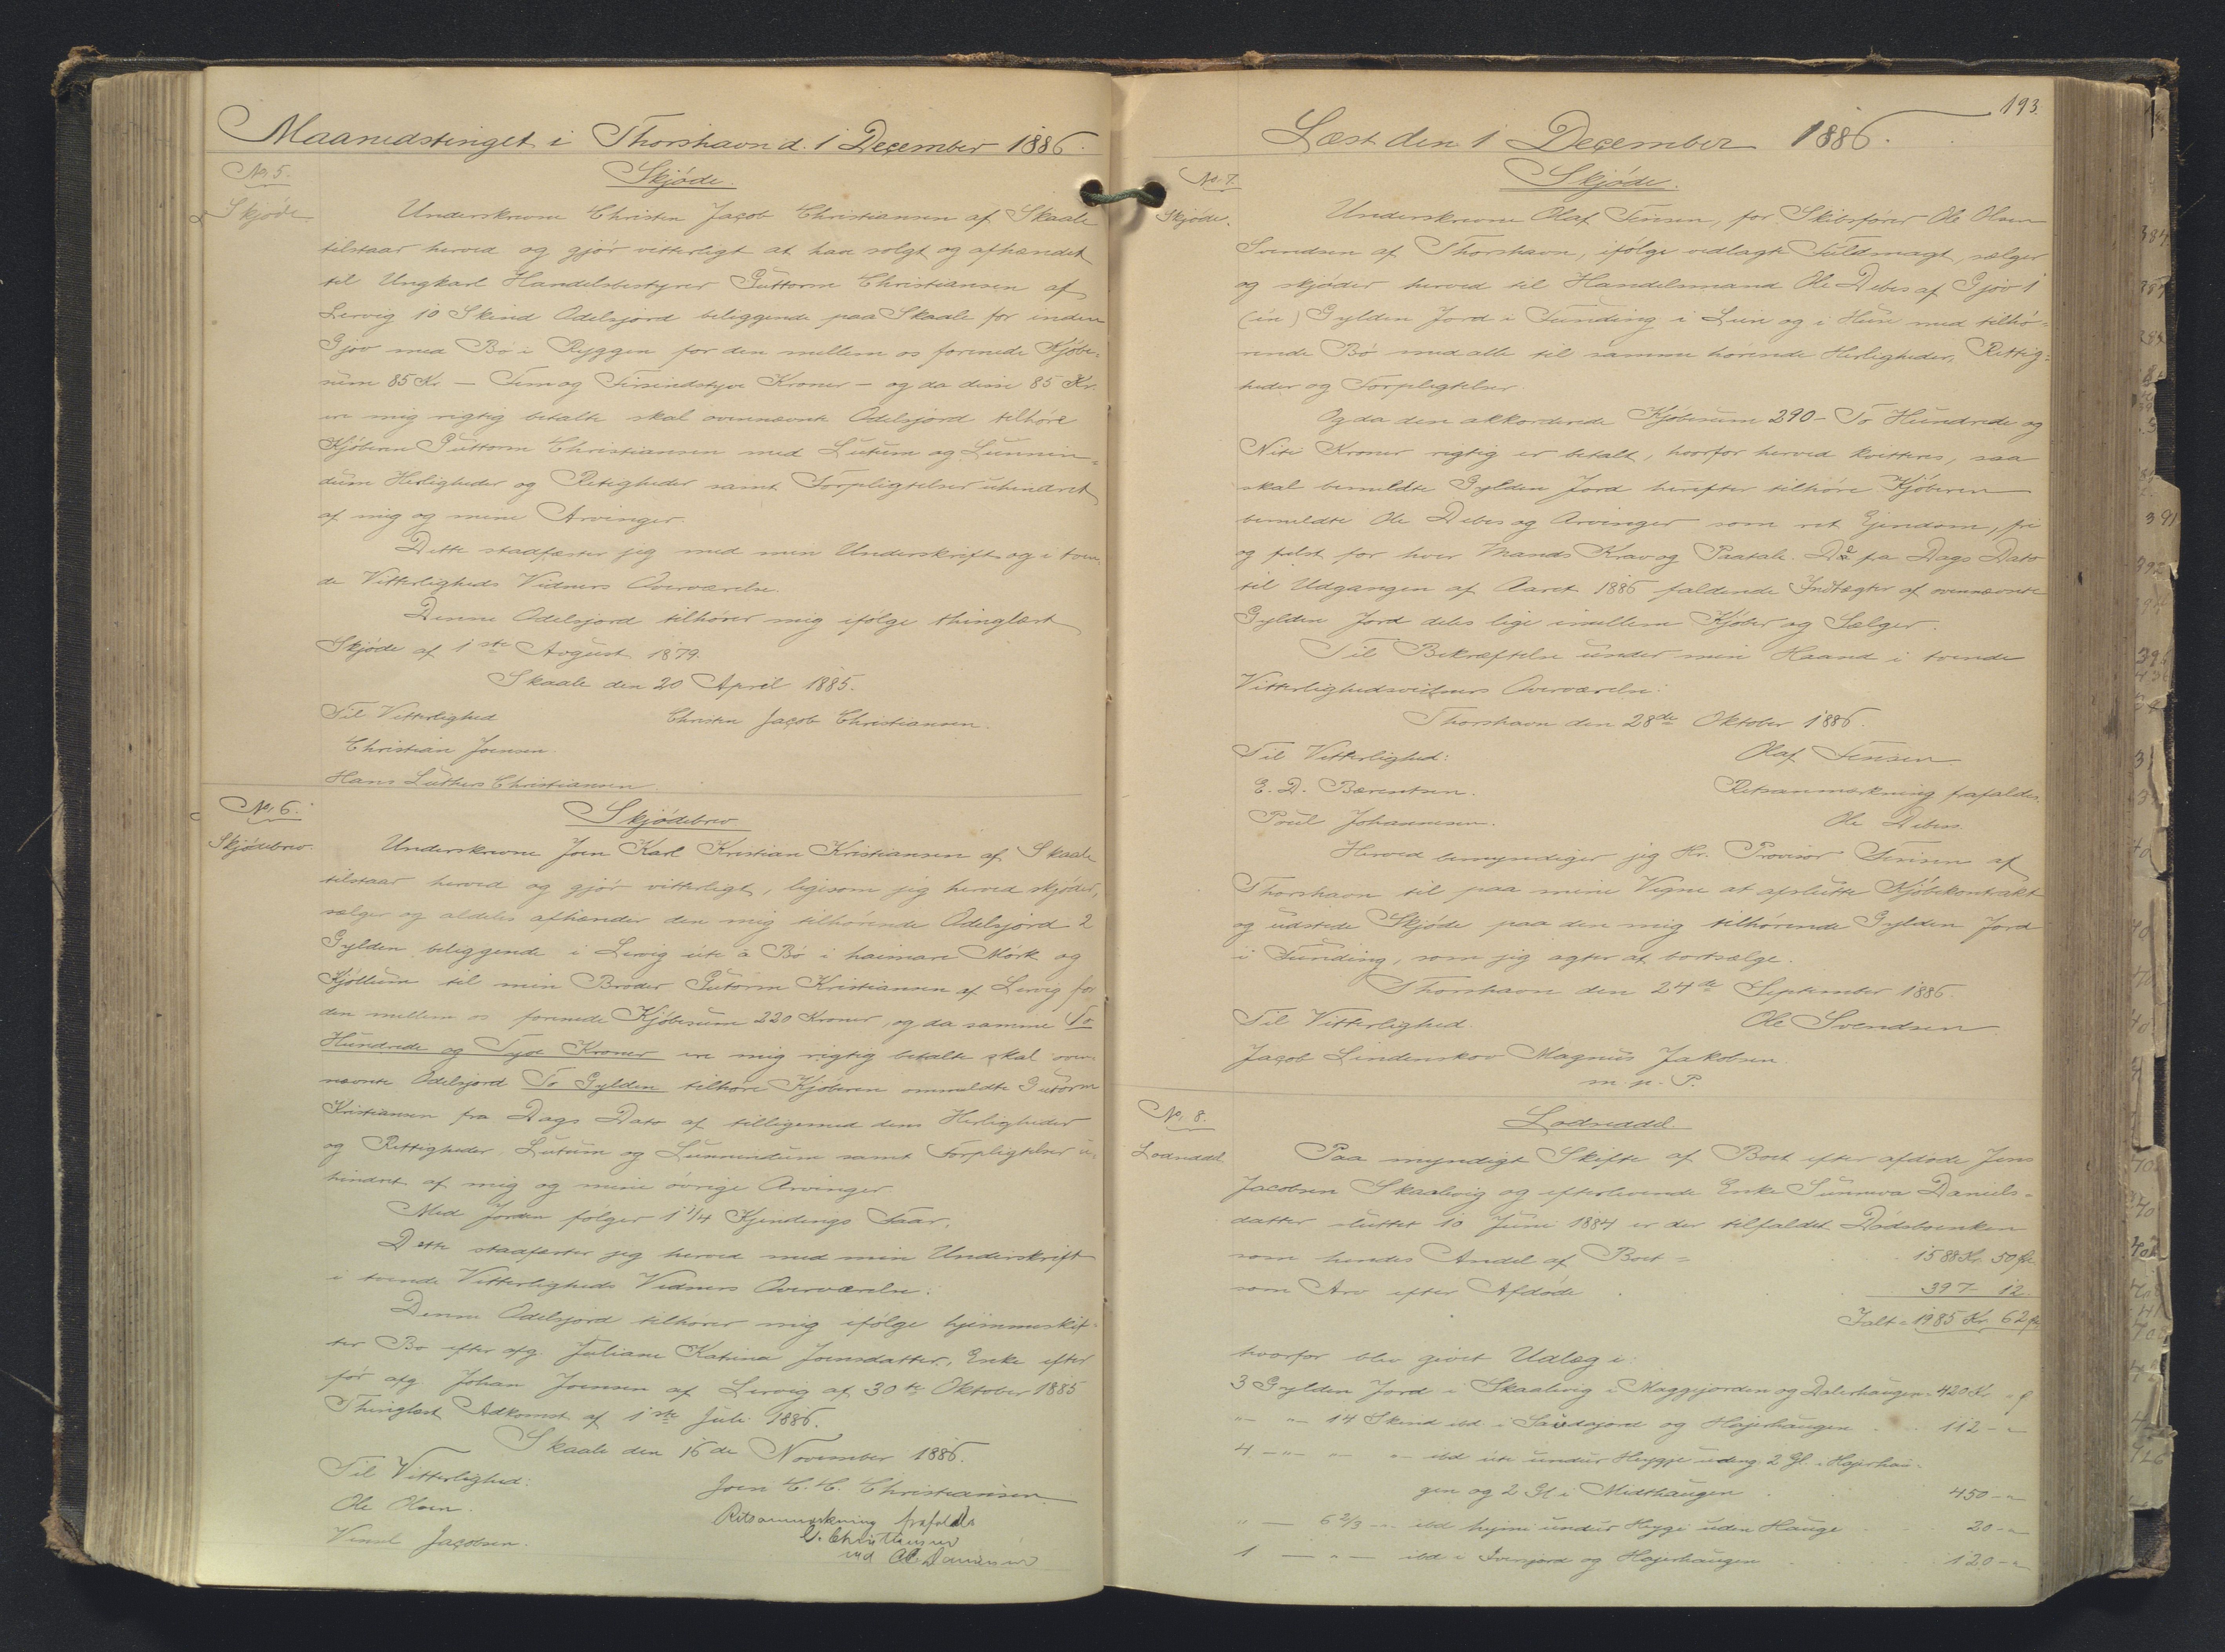 Maanedstinget i Thorshavn d. 1 December 1886.
No. 5.
Skjøde
Skjøde.
Underskrevne Christen Jacob Christiansen af Skaale
tilstaar herved og gjør vitterligt at have solgt og afhændet
til Ungkarl Handelsbestyrer Guttorm Christiansen af
Lervig 10 Skind Odelsjord beliggende paa Skaale for inden
Gjov med Bø i Ryggen for den mellem os forenede Kjøbe-
sum 85 Kr. — Fem og Firsindstyve Kroner — og da disse 85 Kr.
ere mig rigtig betalte skal ovennævnte Odelsjord tilhøre
Kjøberen Guttorm Christiansen med Lutum og Lunnin-
dum Herligheder og Retigheder samt Forpligtelser uhindret
af mig og mine Arvinger.
Dette stadfæster jeg med min Underskrift og i tven-
de Vitterligheds Vidners Overværelse.
Denne Odelsjord tilhører mig ifølge thinglæst
Skjøde af 1ste August 1879.
Skaale den 20 April 1885.
Til Vitterlighed
Christen Jacob Christiansen.
Christian Joensen.
Hans Luthers Christiansen.
No. 6.
Skjødebrev.
Skjødebrev
Underskrevne Joen Karl Kristian Kristiansen af Skaale
tilstaar herved og gjør vitterligt, ligesom jeg herved skjøder,
sælger og aldeles afhænder den mig tilhørende Odelsjord 2
Gylden beliggende i Lervig úte á Bø i haimare Mørk og
Kjøllum til min Broder Gutorm Kristiansen af Lervig for
den mellem os forenede Kjøbesum 220 Kroner, og da samme To
Hundrede og Tyve Kroner ere mig rigtig betalte skal oven
nævnte Odelsjord To Gylden tilhøre Kjøberen ommeldte Gutorm
Kristiansen fra Dags Dato af tilligemed dens Herligheder
og Rettigheder, Lutum og Lunnendum samt Forpligtelser u-
hindret af mig og mine øvrige Arvinger
Med Jorden følger 1 1/4 Kjendings Faar.
Dette stadfæster jeg herved med min Underskrift
i tvende Vitterligheds Vidners Overværelse:
Denne Odelsjord tilhører mig ifølge hjemmeskif-
ter Bo efter afg. Juliane Katrina Joensdatter, Enke efter
før afg. Johan Joensen af Lervig af 30te Oktober 1885
Thinglæst Adkomst af 1ste Juli 1886.
Skaale den 16de November 1886.
Til Vitterlighed:
Joen C. C. Christiansen.
Ole Olsen.
Retsanmærkning frafaldes
G. Christiansen
Jacobsen.
ved
193.
Læst den 1 December 1886.
No. 7.
Skjøde.
Skjøde.
Underskrevne Olaf Finsen, for Skibsfører Ole Olsen
Svendsen af Thorshavn, ifølge vedlagte Fuldmagt, sælger
og skjøder herved til Handelsmand Ole Debes af Gjov 1
(én) Gylden Jord i Funding i Lun og i Hun med tilhø-
rende Bø med alle til samme hørende Herligheder, Rettig-
heder og Forpligtelser.
Og da den akkorderede Kjøbesum 290 – To Hundrede og
Niti Kroner rigtig er betalt, hvorfor herved kvitteres, saa
skal bemeldte Gylden Jord herefter tilhøre Kjøberen
bemeldte Ole Debes og Arvinger som ret Ejendom, fri
og frelst for hver Mands Krav og Paatale. De fra Dags Dato
til Udgangen af Aaret 1886 faldende Indtægter af ovennævnte
Gylden Jord deles lige imellem Kjøber og Sælger.
Til Bekræftelse under min Haand i tvende
Vitterlighedsvidners Overværelse:
Thorshavn den 28de Oktober 1886.
Til Vitterlighed:
Olaf Finsen
E. D. Bærentsen.
Retsanmærkning frafaldes.
Poul Johannesen.
Ole Debes.
Herved bemyndiger jeg Hr. Provisor Finsen af
Thorshavn til paa mine Vegne at afslutte Kjøbekontrakt
og udstede Skjøde paa den mig tilhørende Gylden Jord
i Funding, som jeg agter at bortsælge.
Thorshavn den 24de September 1886.
Til Vitterlighed.
Ole Svendsen
Jacob Lindenskov Magnus Jakobsen.
m. p. P.
No. 8.
Lodseddel
Lodseddel
Paa myndigt Skifte af Boet efter afdøde Jens
Jacobsen Skaalevig og efterlevende Enke Sunneva Daniels-
datter sluttet 10 Juni 1884 er der tilfaldet Dødsboenken
som hendes Andel af Boet = 1588 Kr. 50 Ør.
som Arv efter Afdøde 397 - 12
Ialt = 1985 Kr. 62 Ør
hvorfor blev givet Udlæg i:
3 Gylden Jord i Skaalevig i Maggejorden og Dalerhaugen = 420 Kr. - Ø
" - " - 14 Skind ibd i Saudajord og Højerhaugen . . 112 - "
4 - " - " - " - ibd úte undur Heygje uden 2 Gl. i Højerhau-
gen og 2 Gl i Midthaugen . 450 - "
" - 6 2/3 - " - ibd hejme undur Heygi uden Hauge . . 20 - "
1 — " — ibd i Iversjord og Højerhaugen . . 120 - "